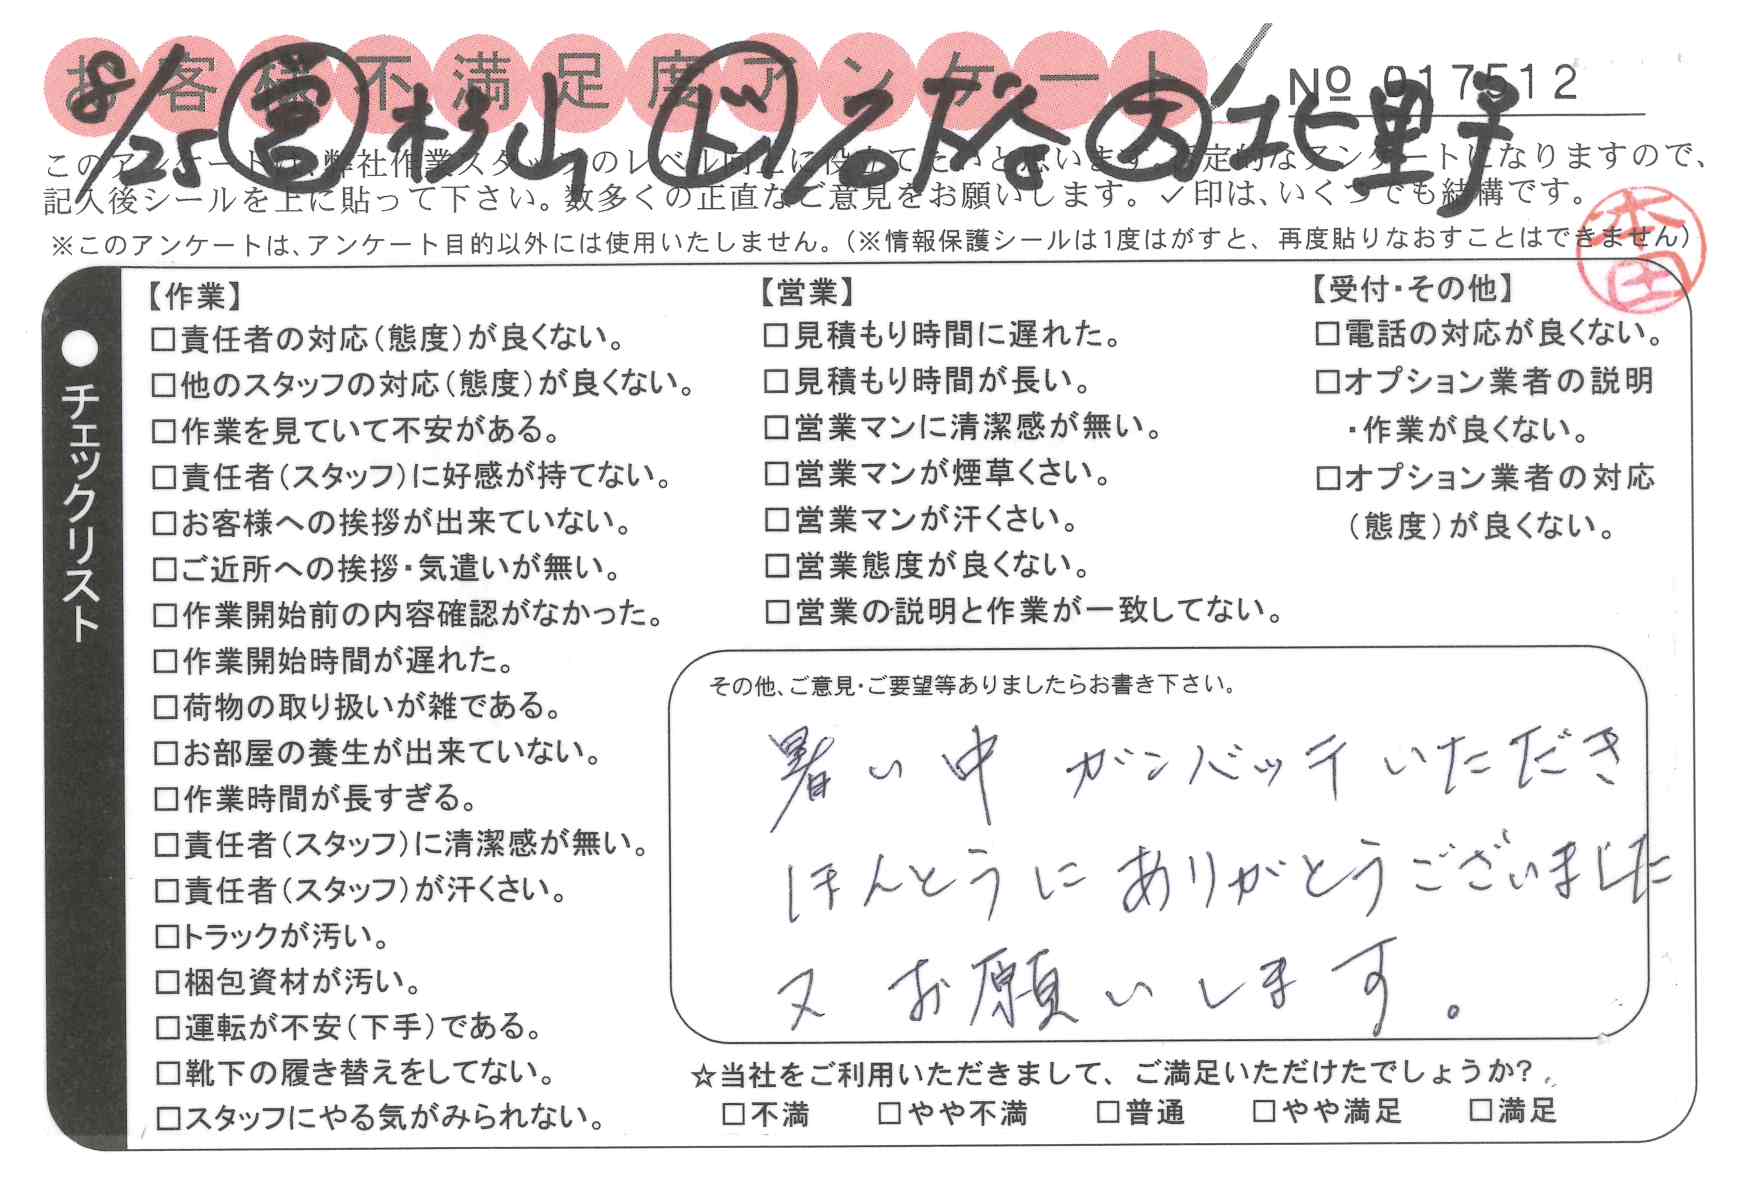 お客様不満足度アンケート
№ 017512
8/25 営 杉山 ド 岩谷 大 北里予
このアンケートは、弊社作業スタッフのレベル向上に役立てたいと思います。否定的なアンケートになりますので、
記入後シールを上に貼って下さい。数多くの正直なご意見をお願いします。✓印は、いくつでも結構です。
※このアンケートは、アンケート目的以外には使用いたしません。（※情報保護シールは1度はがすと、再度貼りなおすことはできません）
本田
●チェックリスト
【作業】
□責任者の対応（態度）が良くない。
□他のスタッフの対応（態度）が良くない。
□作業を見ていて不安がある。
□責任者（スタッフ）に好感が持てない。
□お客様への挨拶が出来ていない。
□ご近所への挨拶・気遣いが無い。
□作業開始前の内容確認がなかった。
□作業開始時間が遅れた。
□荷物の取り扱いが雑である。
□お部屋の養生が出来ていない。
□作業時間が長すぎる。
□責任者（スタッフ）に清潔感が無い。
□責任者（スタッフ）が汗くさい。
□トラックが汚い。
□梱包資材が汚い。
□運転が不安（下手）である。
□靴下の履き替えをしてない。
□スタッフにやる気がみられない。
【営業】
□見積もり時間に遅れた。
□見積もり時間が長い。
□営業マンに清潔感が無い。
□営業マンが煙草くさい。
□営業マンが汗くさい。
□営業態度が良くない。
□営業の説明と作業が一致してない。
【受付・その他】
□電話の対応が良くない。
□オプション業者の説明
・作業が良くない。
□オプション業者の対応
（態度）が良くない。
その他、ご意見・ご要望等ありましたらお書き下さい。
暑い中 ガンバッテいただき
ほんとうにありがとうございました
又 お願いします。
☆当社をご利用いただきまして、ご満足いただけたでしょうか？
□不満 □やや不満 □普通 □やや満足 □満足